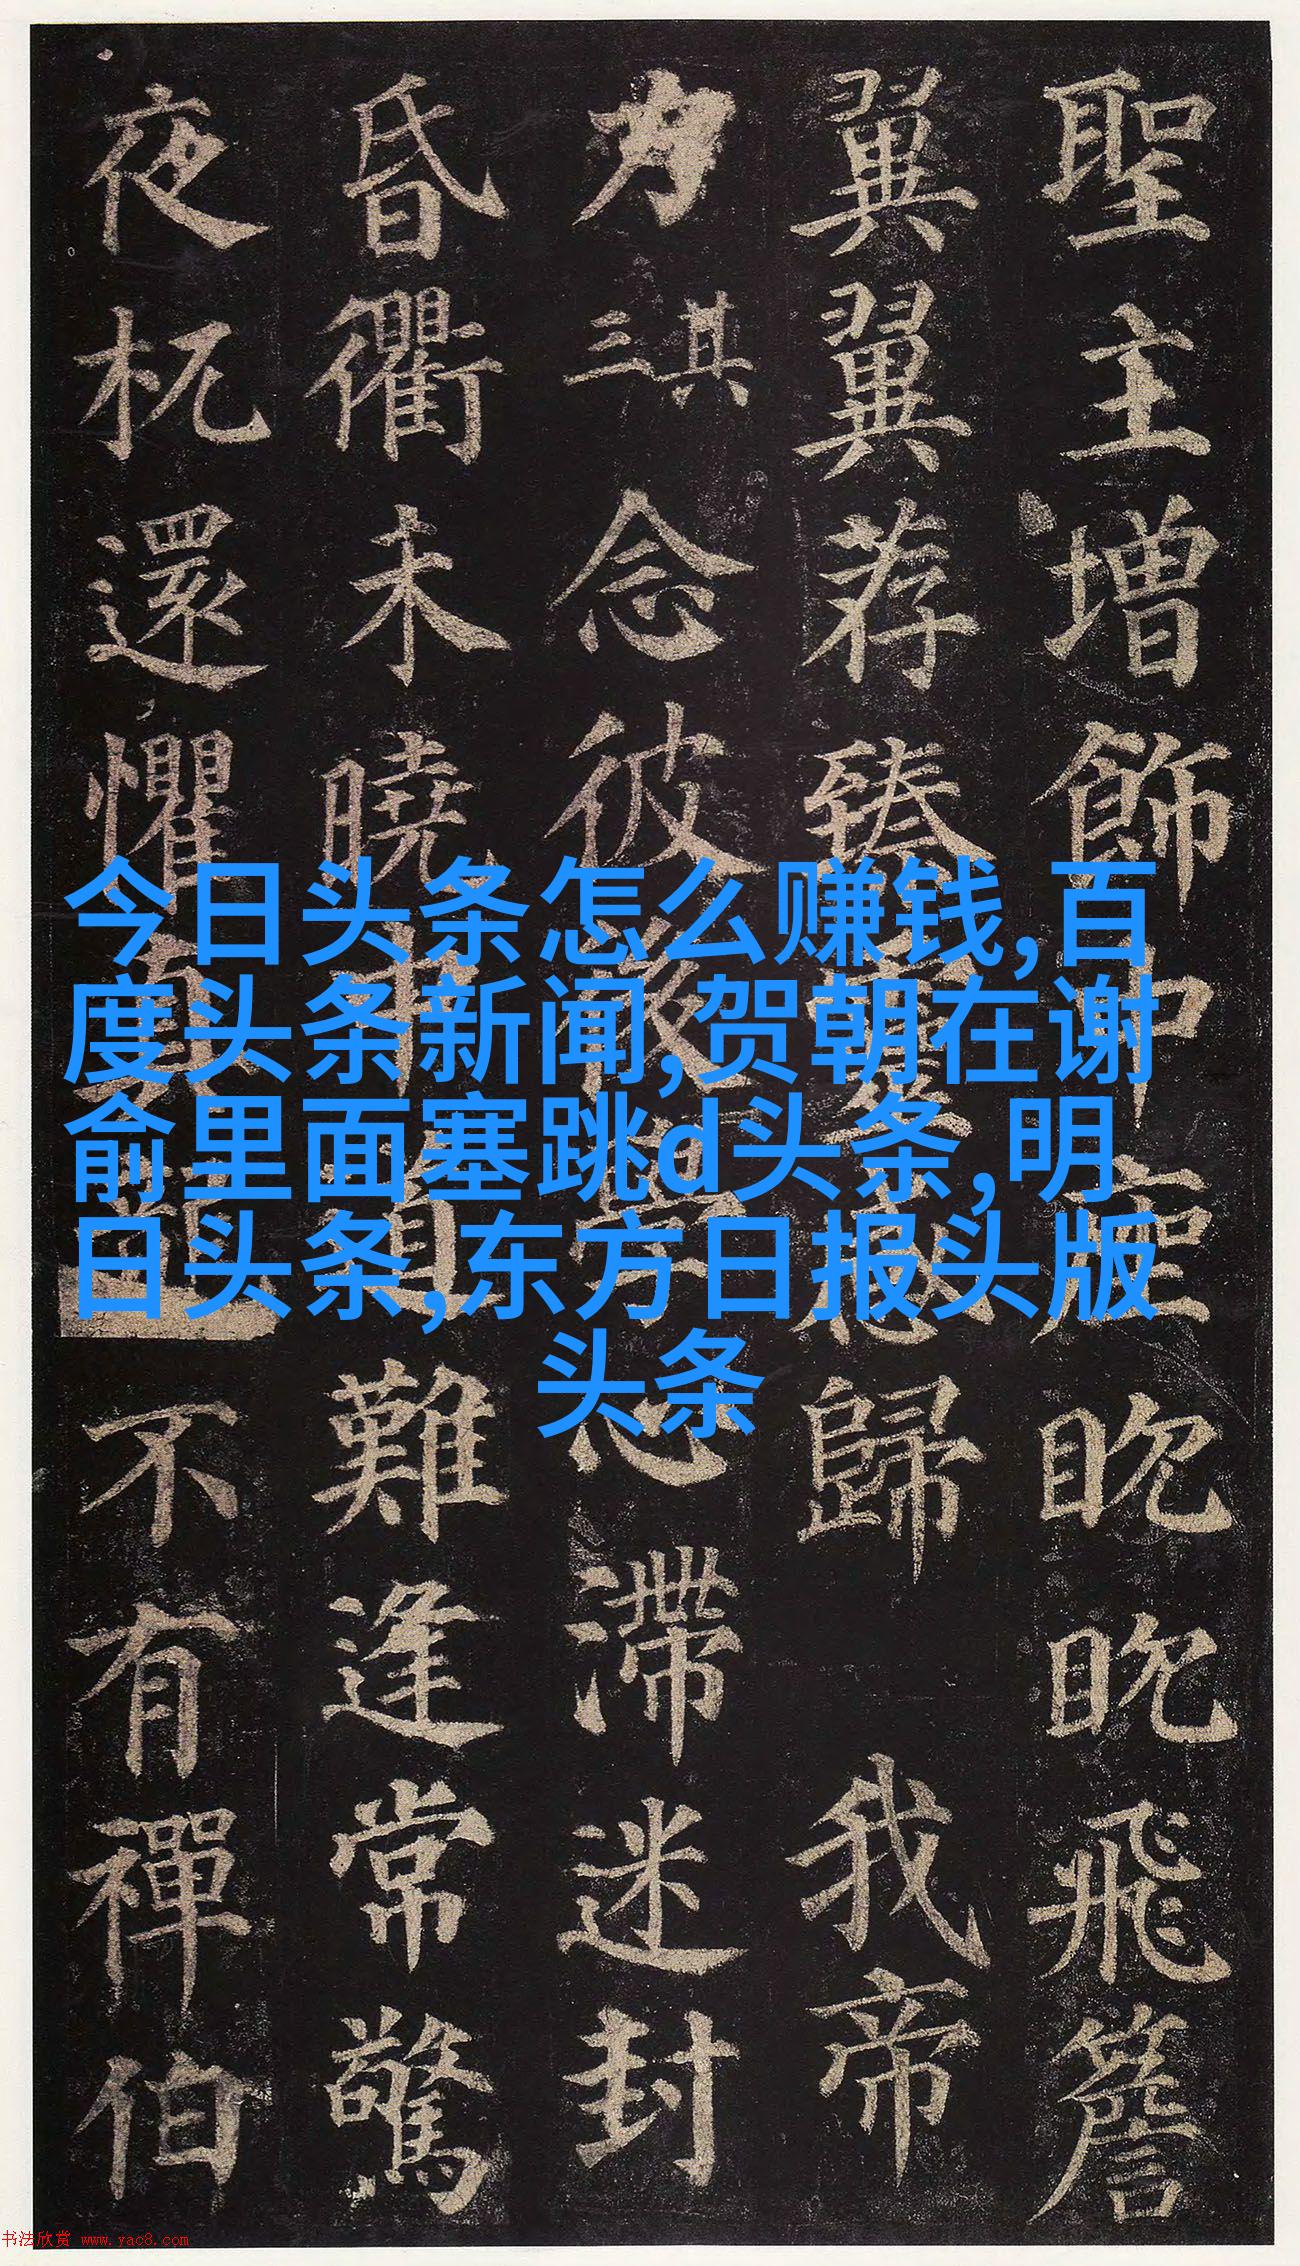 聖主增飾中座眈眈飛簷
翼翼荐臻歸我帝
力其三念彼心滯迷封
昏衢未曉難逢常驚
夜杌還懼不有禪伯
今日头条怎么赚钱,百
度头条新闻,贺朝在谢
俞里面塞跳d头条,明
日头条,东方日报头版
头条
书法欣赏 www.yac8.com